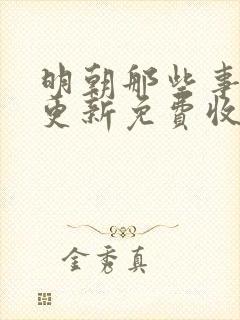 明朝那些事
更新免费收
金秀真